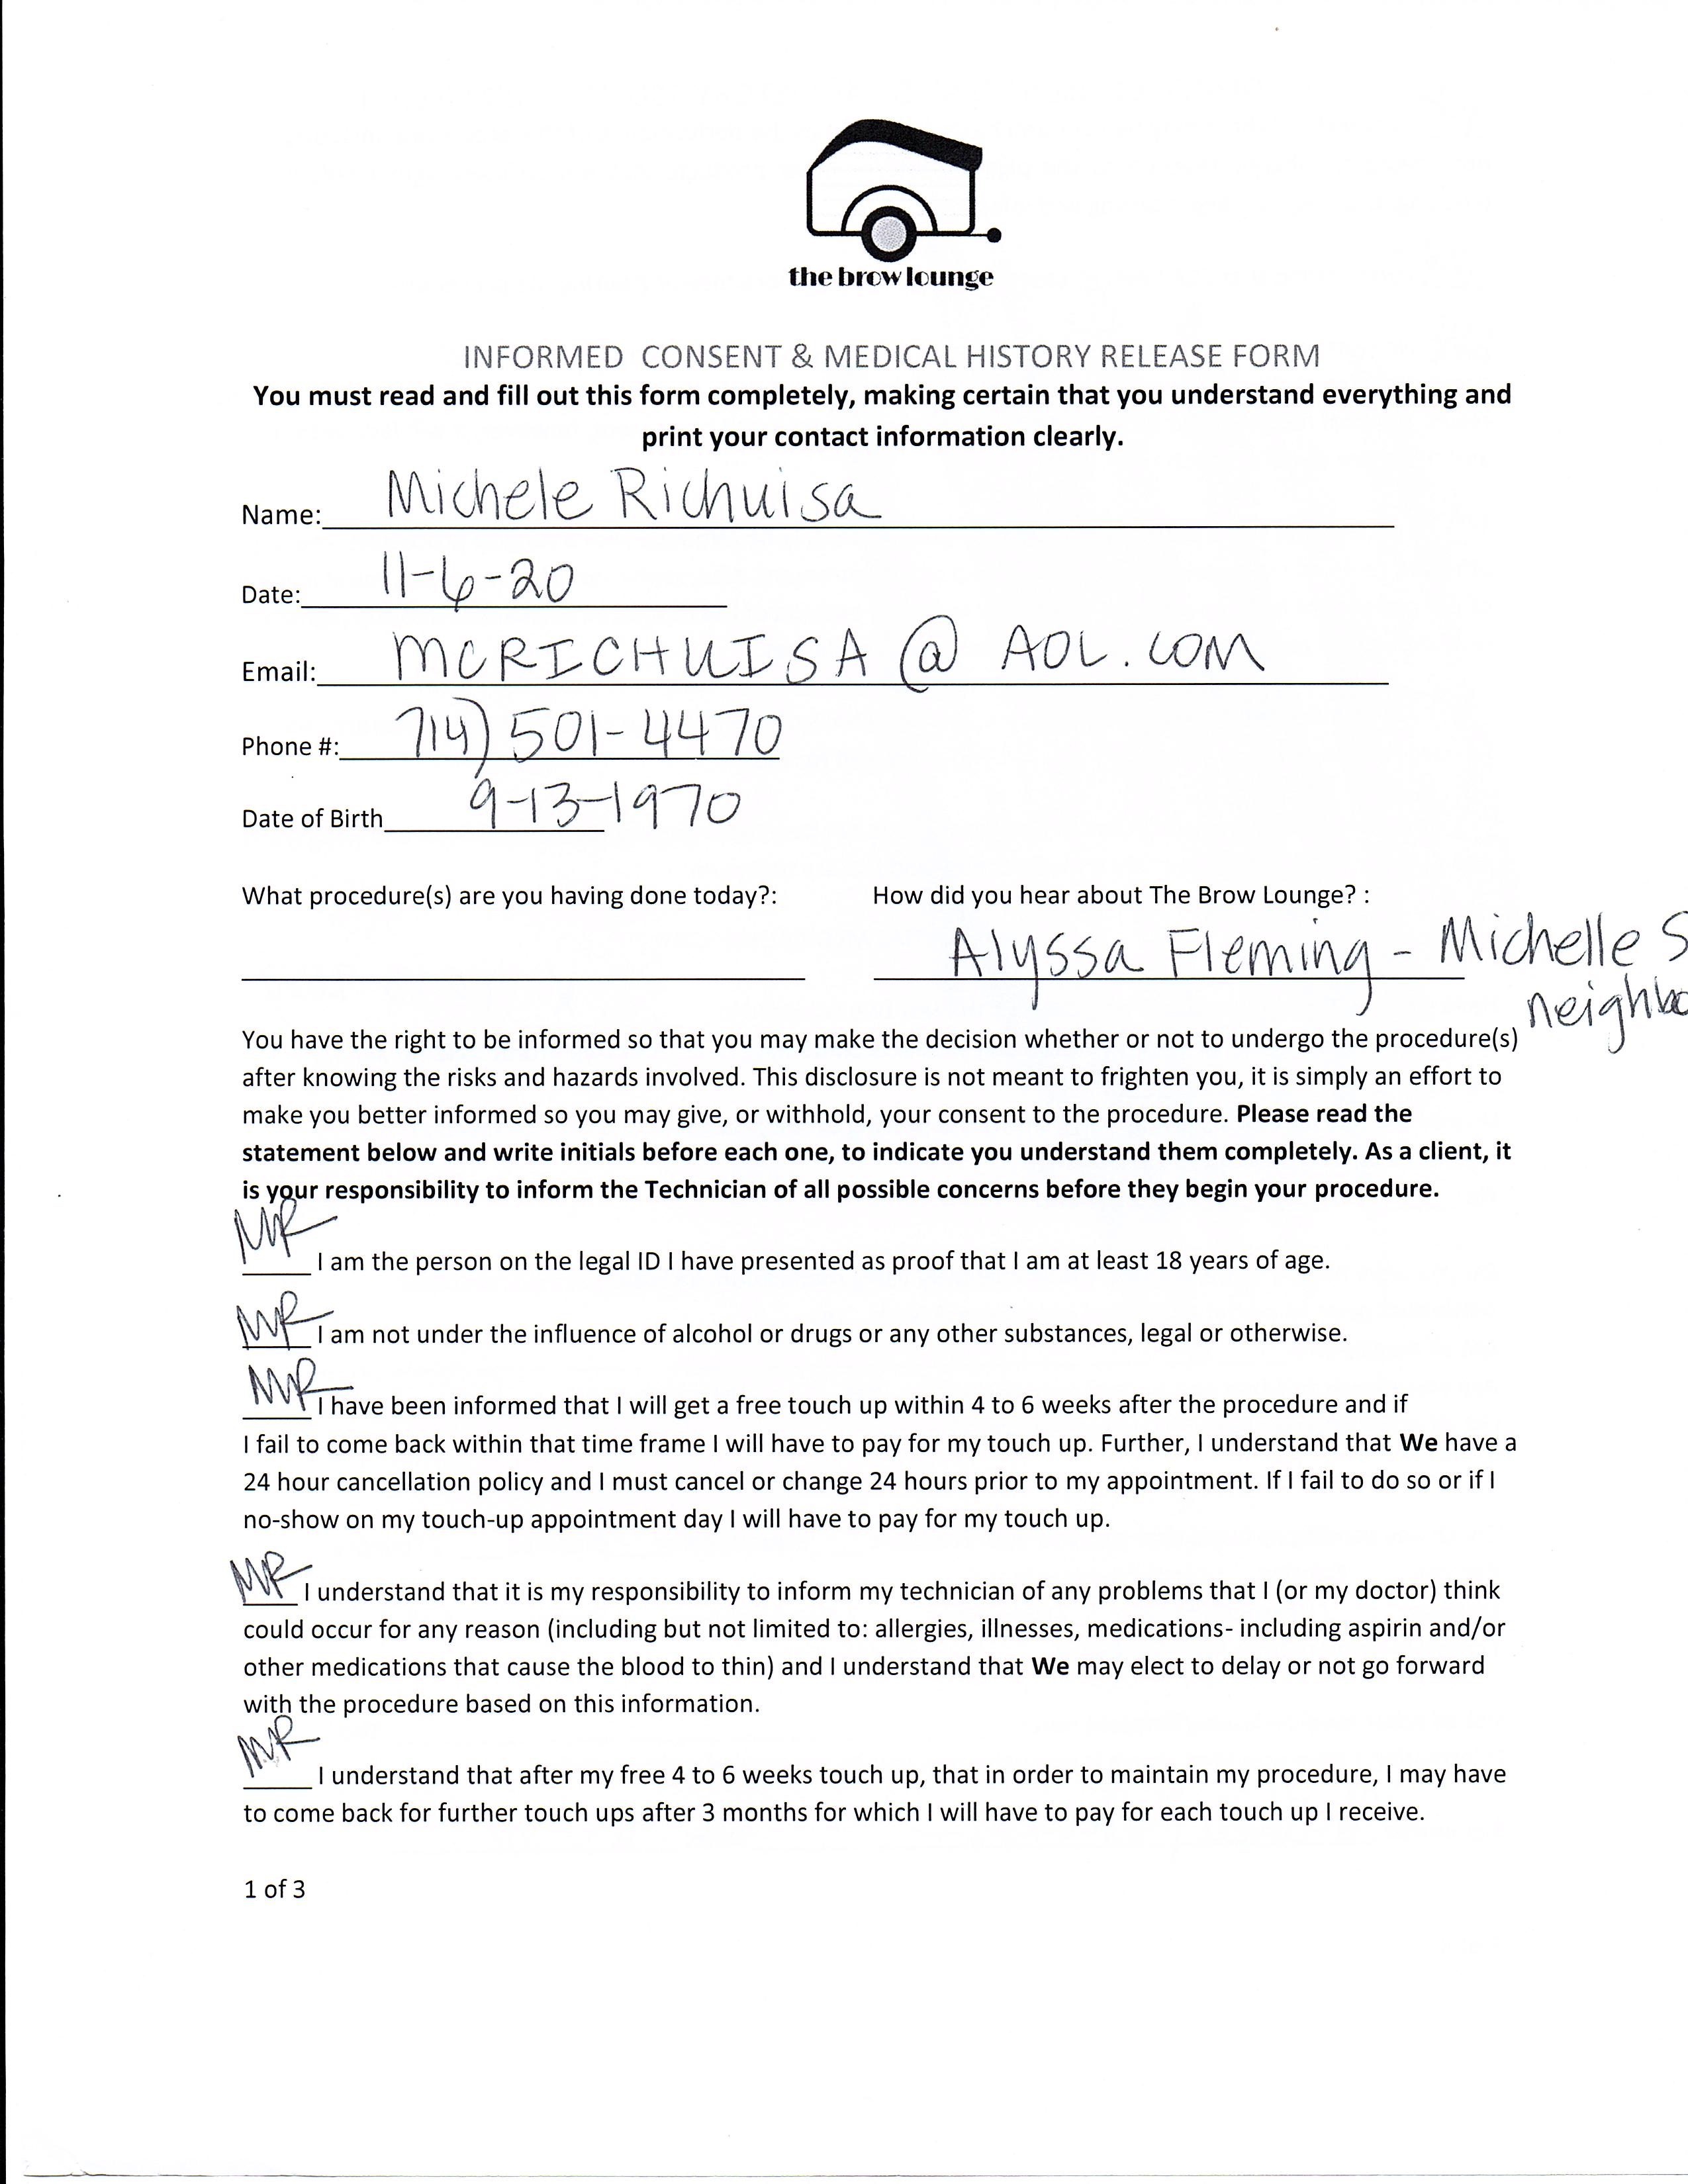 the brow lounge
INFORMED CONSENT & MEDICAL HISTORY RELEASE FORM
You must read and fill out this form completely, making certain that you understand everything and
print your contact information clearly.
Name: Michele Richuisa
Date: 11-6-20
Email: MCRICHUISA @ AOL.COM
Phone #: 714) 501-4470
Date of Birth 9-13-1970
What procedure(s) are you having done today?: How did you hear about The Brow Lounge? :
Alyssa Fleming - Michelle S
neighbo
You have the right to be informed so that you may make the decision whether or not to undergo the procedure(s)
after knowing the risks and hazards involved. This disclosure is not meant to frighten you, it is simply an effort to
make you better informed so you may give, or withhold, your consent to the procedure. Please read the
statement below and write initials before each one, to indicate you understand them completely. As a client, it
is your responsibility to inform the Technician of all possible concerns before they begin your procedure.
MR I am the person on the legal ID I have presented as proof that I am at least 18 years of age.
MR I am not under the influence of alcohol or drugs or any other substances, legal or otherwise.
MR I have been informed that I will get a free touch up within 4 to 6 weeks after the procedure and if
I fail to come back within that time frame I will have to pay for my touch up. Further, I understand that We have a
24 hour cancellation policy and I must cancel or change 24 hours prior to my appointment. If I fail to do so or if I
no-show on my touch-up appointment day I will have to pay for my touch up.
MR I understand that it is my responsibility to inform my technician of any problems that I (or my doctor) think
could occur for any reason (including but not limited to: allergies, illnesses, medications- including aspirin and/or
other medications that cause the blood to thin) and I understand that We may elect to delay or not go forward
with the procedure based on this information.
MR I understand that after my free 4 to 6 weeks touch up, that in order to maintain my procedure, I may have
to come back for further touch ups after 3 months for which I will have to pay for each touch up I receive.
1 of 3